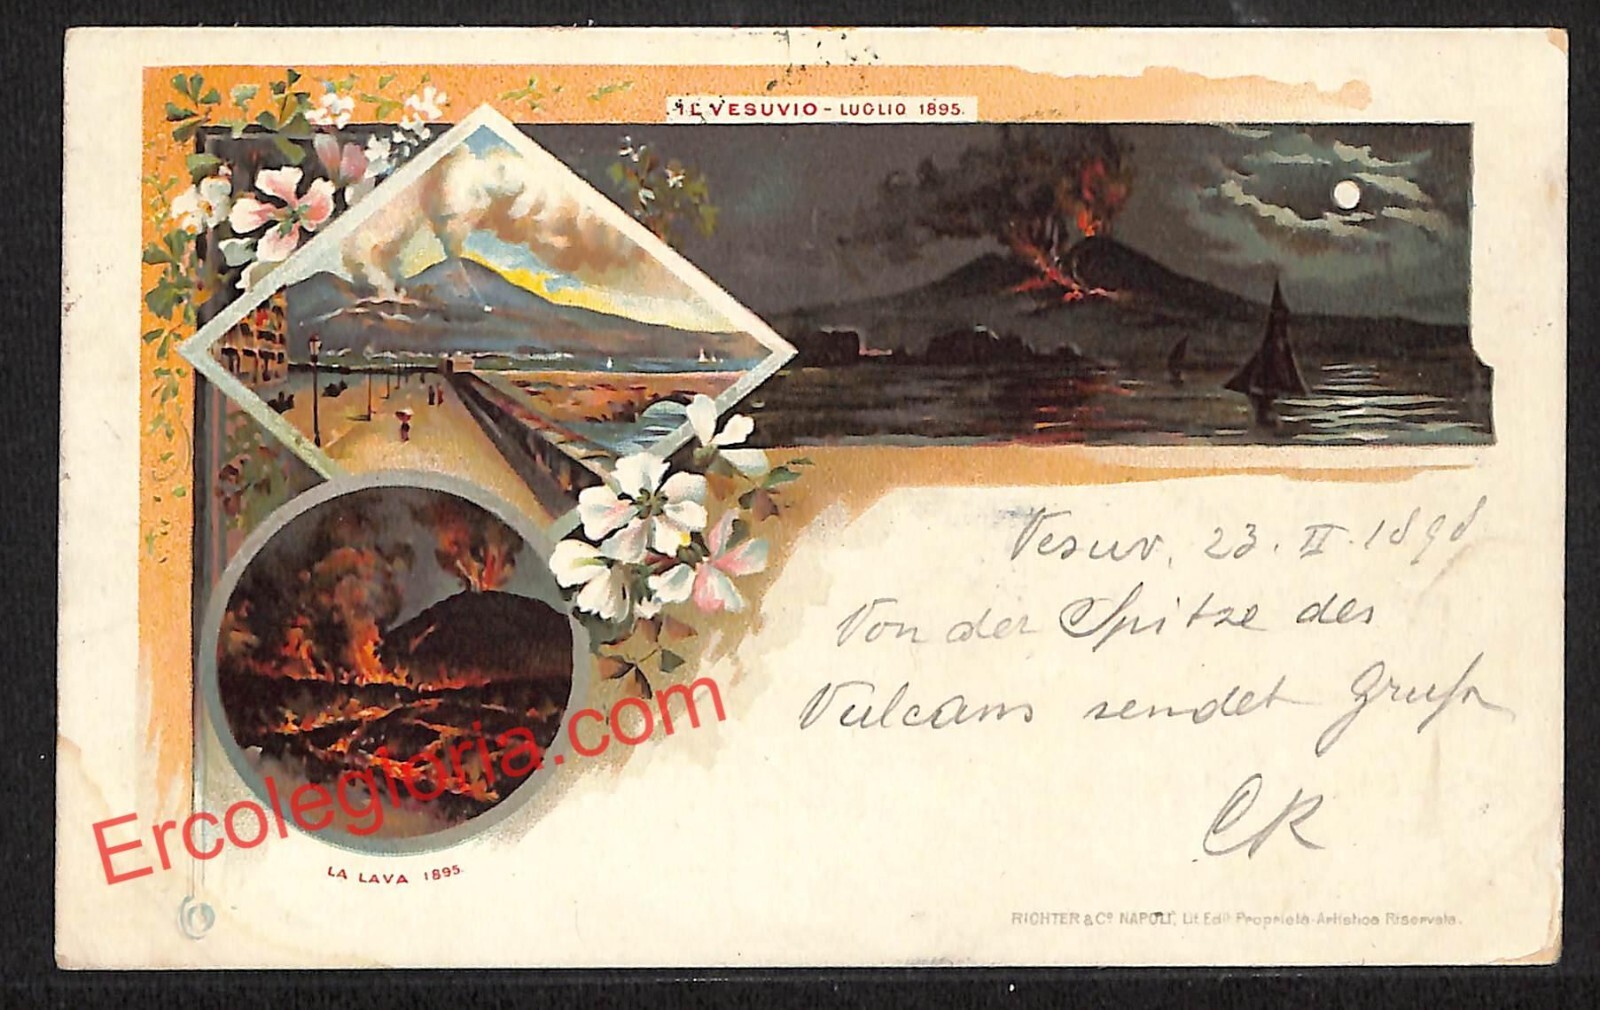 IL VESUVIO - LUGLIO 1895.
Vesuv, 23. II. 1898
Von der Spitze des
Vulcans sendet Gruß
CR
Ercolegloria.com
LA LAVA 1895.
RICHTER & Cº NAPOLI, Lit. Edit. Proprietà Artistica Riservata.